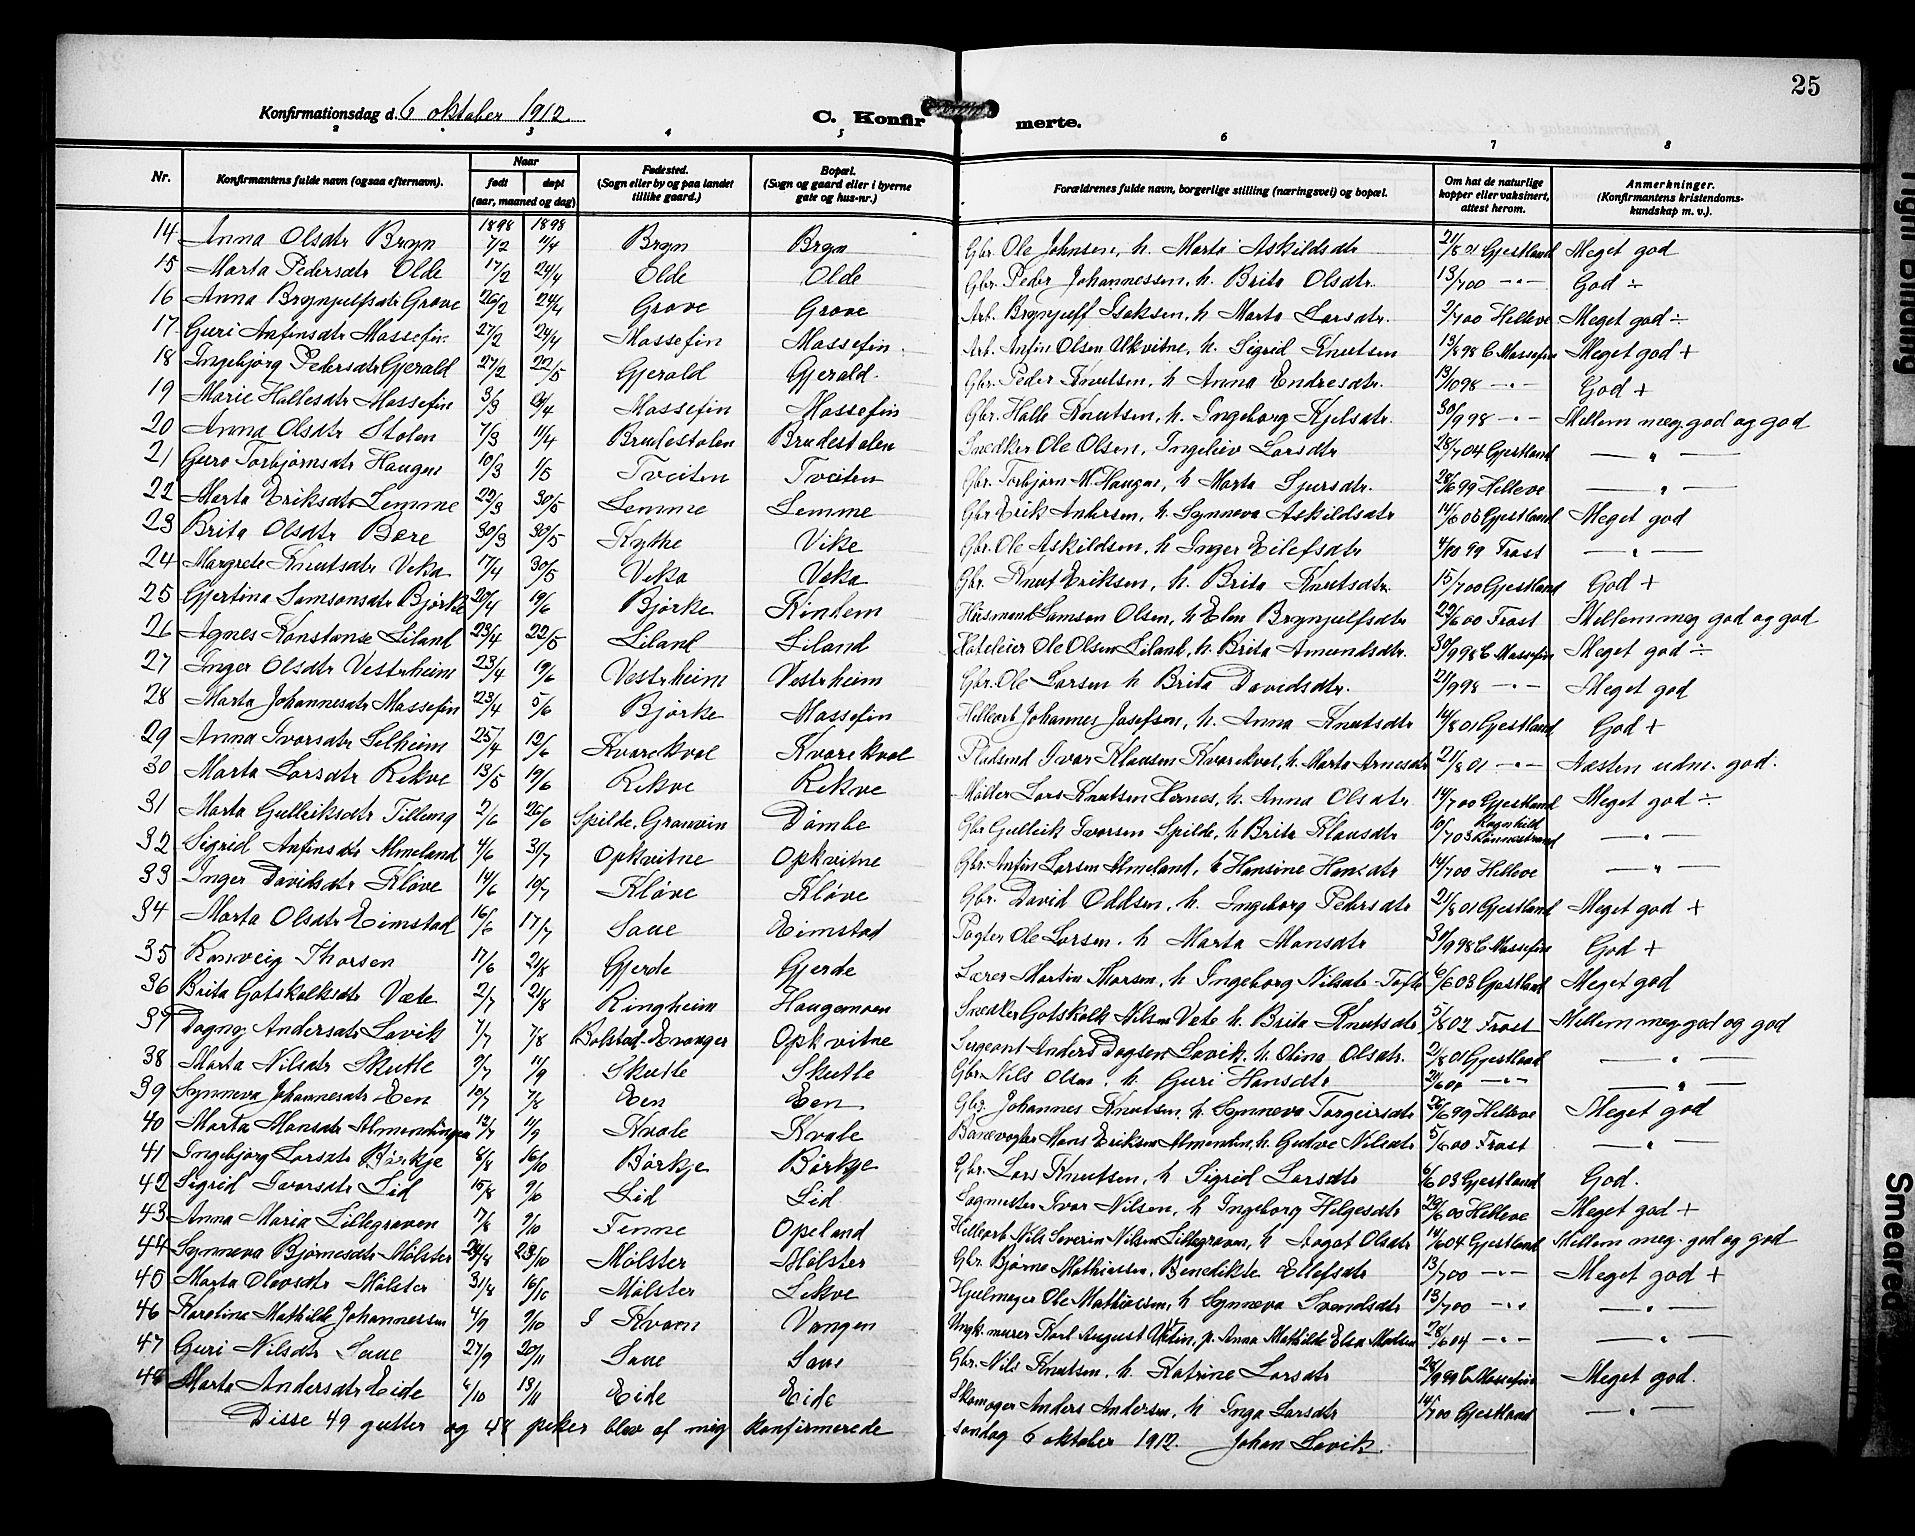 25
Konfirmationsdag d. 6 oktober 1912.
C. Konfirmerte.
2 3 4 5 6 7 8
Nr.
Konfirmantens fulde navn (ogsaa efternavn).
Naar
født døpt
(aar, maaned og dag)
Fødested.
(Sogn eller by og paa landet
tillike gaard.)
Bopæl.
(Sogn og gaard eller i byerne
gate og hus-nr.)
Forældrenes fulde navn, borgerlige stilling (næringsvei) og bopæl.
Om hat de naturlige
kopper eller vaksinert,
attest herom.
Anmerkninger.
(Konfirmantens kristendoms-
kundskap m. v.).
1898 1898
14 Anna Olsdtr Bryn 7/2 11/4 Bryn Bryn Gbr. Ole Johnsen, h. Marta Askildsdtr 21/8 01 Gjestland Meget god
15 Marta Pedersdtr Olde 17/2 24/4 Olde Olde Gbr. Peder Johannessen, h. Brita Olsdtr. 13/7 00 -"- God ÷
16 Anna Brynjulfsdtr Grove 26/2 24/4 Grove Grove Arb. Brynjulf Isaksen, h. Marta Larsdtr. 7/7 00 Helleve Meget god ÷
17 Guri Anfinsdtr Møssefin 27/2 24/4 Møssefin Møssefin Arb. Anfin Olsen Ukvitne, h. Sigrid Knutsen 13/8 98 C Møssefin Meget god +
18 Ingebjørg Pedersdtr Gjerald 27/2 22/5 Gjerald Gjerald. Gbr. Peder Knutsen, h Anna Endresdtr. 13/10 98 -"- God +
19 Marie Hallesdtr Møssefin 3/3 24/4 Møssefin Møssefin Gbr. Halle Knutsen, h. Ingeborg Kjelsdtr. 30/9 98 -"- Mellem meg. god og god
20 Anna Olsdtr Stolen 7/3 11/4 Brudestolen Brudestolen Snedker Ole Olsen, Ingeliev Larsdtr 28/7 04 Gjestland — " —
21 Guro Torbjørnsdtr Haugen 10/3 1/5 Tveiten Tveiten Gbr. Torbjørn M. Haugen, h Marta Sjursdtr. 26/6 99 Helleve — " —
22 Marta Eriksdtr Lemme 22/3 30/5 Lemme Lemme Gbr Erik Andersen, h. Synneva Askildsdtr 14/6 03 Gjestland Meget god
23 Brita Olsdtr Bere 30/3 30/5 Kytke Vike Gbr. Ole Askildsen, h Inger Eilefsdtr 4/10 99 Frost — " —
24 Margrete Knutsdtr Veka 17/4 30/5 Veka Veka Gbr. Knut Eriksen, h. Brita Knutsdtr. 15/7 00 Gjestland God +
25 Gjertina Samsonsdtr Bjørke 20/4 19/6 Bjørke Kindem Husmand Samson Olsen, h Elen Brynjulfsdtr 29/6 00 Frost Mellem meg god og god
26 Agnes Konstanse Liland 23/4 22/5 Liland Liland Hoteleier Ole Olsen Liland, h. Brita Amundsdtr. 30/9 98 C Møssefin Meget god ÷
27 Inger Olsdtr Vestrheim 23/4 19/6 Vestrheim Vestrheim Gbr. Ole Larsen h Brita Davidsdtr. 21/9 98 -"- Meget god
28 Marta Johannesdtr Møssefin 23/4 5/6 Bjørke Møssefin Helleerb Johannes Josefsen, h. Anna Knutsdtr 14/8 01 Gjestland God +
29 Anna Ivarsdtr Selheim 25/4 12/6 Kvarekval Kvarekval Pladsmd Ivar Klausen Kvarekval, h. Marta Arnesdtr 21/8 01 -"- Næsten udm. god.
30 Marta Larsdtr Rekve 13/5 19/6 Rekve Rekve Møller Lars Knutsen Hernes, h. Anna Olsdtr 14/7 00 Gjestland Meget god ÷
31 Marta Gulleiksdtr Tillung 2/6 26/6 Spilde, Granvin Dømbe Gbr Gulleik Ivarsen Spilde, h. Brita Klausdtr 10/7 03 Ragnhild Rønnestrand — " —
32 Sigrid Anfinsdtr Almeland 4/6 31/7 Opkvitne Opkvitne Gbr. Anfin Larsen Almeland, h Hansine Hansdtr 14/7 00 Helleve — " —
33 Inger Davidsdtr Kløve 14/6 10/7 Kløve Kløve Gbr. David Oddsen, h. Ingeborg Pedersdtr 21/8 01 Gjestland Meget god +
34 Marta Olsdtr Eimstad 16/6 17/7 Saue Eimstad Pagter Ole Larsen. h Marta Monsdtr 30/9 98 C Møssefin God +
35 Ranveig Thorsen 17/6 21/8 Gjerde Gjerde Lærer Martin Thorsen, h Ingeborg Nilsdtr Tofte 6/6 03 Gjestland Meget god
36 Brita Gotskalksdtr Væte 2/7 21/8 Ringheim Haugamoen Snedker Gotskalk Nilsen Væte h. Brita Knutsdtr 5/8 02 Frost Mellem meg. god og god
37 Dagny Andersdtr Lavik 7/7 7/8 Bolstad. Evanger Opkvitne Sergeant Anders Dagsen Lavik. h. Olina Olsdtr. 21/8 01 Gjestland — " —
38 Marta Nilsdtr Skutle 9/7 11/9 Skutle Skutle Gbr. Nils Olsen, h. Guri Hansdtr 20/6 00 -"- — " —
39 Synneva Johannesdtr Een 10/7 7/8 Een Een Gbr. Johannes Knutsen, h. Synneva Torgeirsdtr 26/6 99 Helleve Meget god
40 Marta Monsdtr Almendingen 12/7 11/9 Kvale Kvale Banevogter Mons Eriksen Almendin, h. Gudve Nilsdtr 5/6 00 Frost — " —
41 Ingebjørg Larsdtr Børkje 8/8 16/10 Børkje Børkje Gbr. Lars Knutsen, h Sigrid Larsdtr 6/6 03 Gjestland God.
42 Sigrid Ivarsdtr Lid 15/8 9/10 Lid Lid Sagmester Ivar Nilsen, h Ingeborg Helgesdtr 29/6 00 Helleve Meget god +
43 Anna Maria Lillegraven 17/8 9/10 Tenne Opeland Helleerb Nils Severin Nilsen Lillegraven, h Aagot Olsdtr 14/6 04 Gjestland Mellem meg. god og god
44 Synneva Bjørnesdtr Mølster 24/8 23/10 Mølster Mølster Gbr. Bjørne Mathiassen, Benedikte Eilefsdtr 13/7 00 -"- Meget god +
45 Marta Olavsdtr Mølster 31/8 16/10 Mølster Lekve Hjulmager Ole Mathiassen, h Synneva Svendsdtr 13/7 00 -"- — " —
46 Karolina Mathilde Johannessen 4/9 9/10 I Kvam Vangen Ungk. murer Karl August, p. Anna Mathilde Elea Madsen 28/6 04 -"- — " —
47 Guri Nilsdtr Saue 27/9 20/11 Saue Saue Gbr. Nils Knutsen, h Katrine Larsdtr 26/9 99 C Møssefin Meget god.
48 Marta Andersdtr Eide 6/10 13/11 Eide Eide Skomager Anders Andersen, h Inga Larsdtr 14/7 00 Gjestland — " —
Disse 49 gutter og 48 piker blev af mig konfirmerede søndag 6 oktober 1912. Johan Lavik.
Tight Binding
Smeared